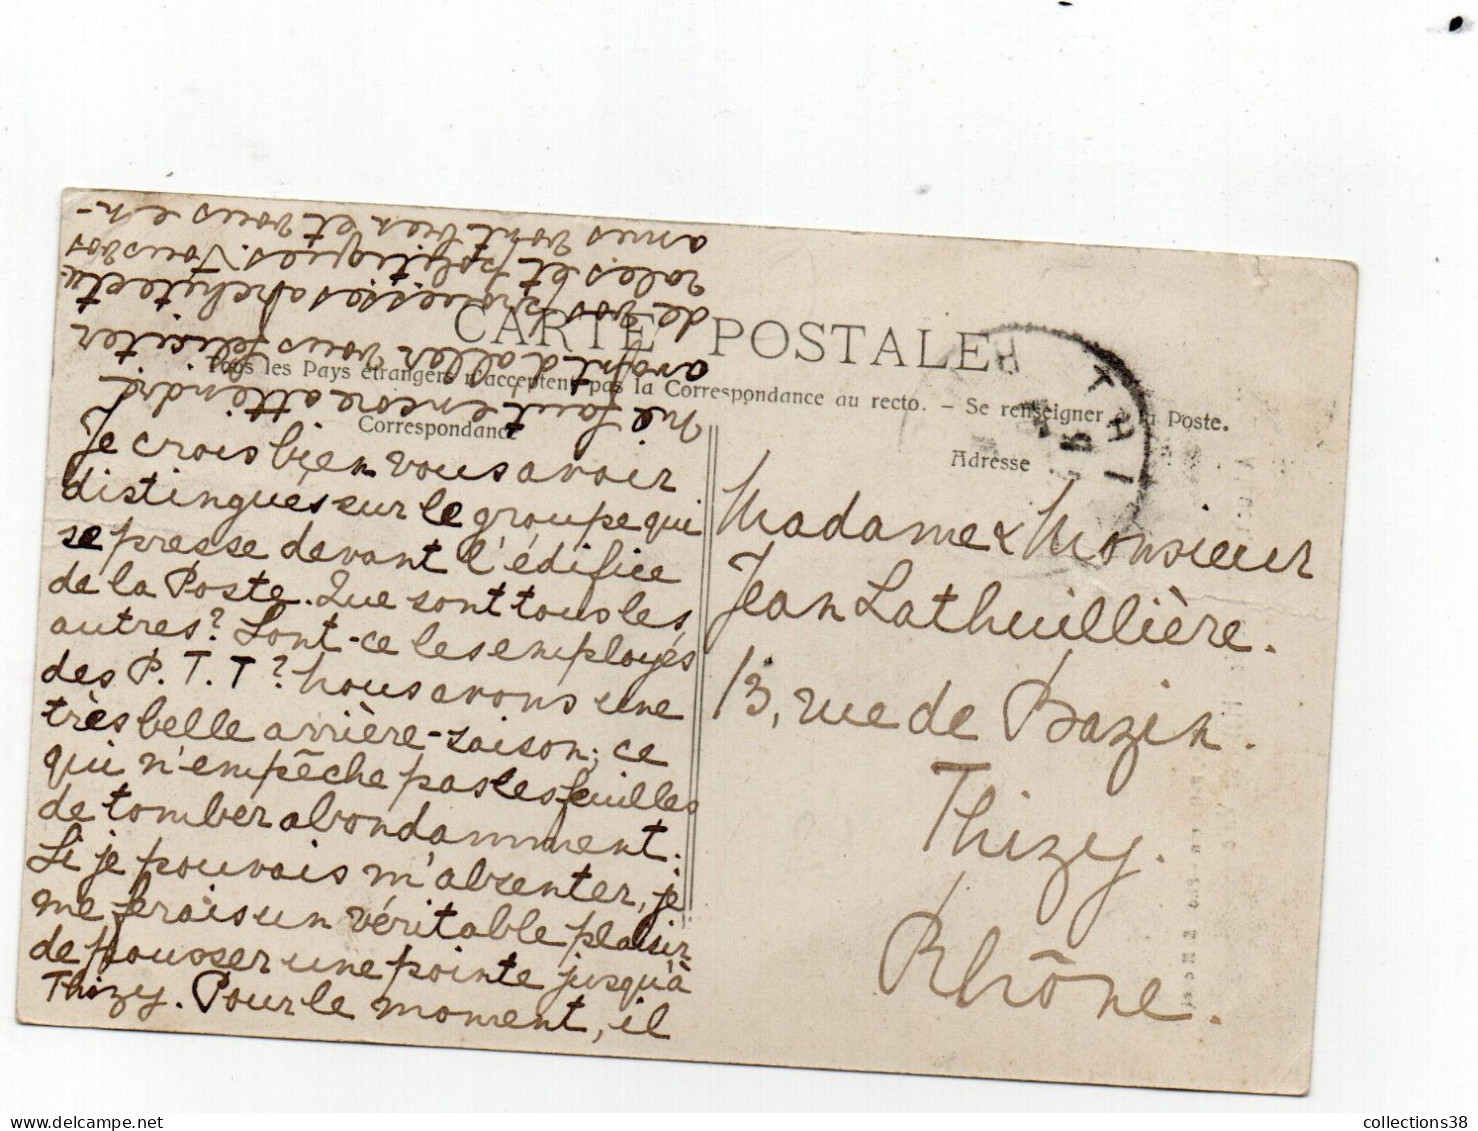 CARTE POSTALE
Tous les Pays étrangers n'acceptent pas la Correspondance au recto. – Se renseigner à la Poste.
Correspondance
Adresse
Je crois bien vous avoir
distingués sur le groupe qui
se presse devant l'édifice
de la Poste. Que sont tous les
autres? Sont-ce les employés
des P.T.T? Nous avons une
très belle arrière-saison; ce
qui n'empêche pas les feuilles
de tomber abondamment.
Si je pouvais m'absenter, je
me ferais un véritable plaisir
de pousser une pointe jusqu'à
Thizy. Pour le moment, il
me faut encore attendre
avant d'aller vous féliciter
de vos prouesses architectu-
rales et politiques. Tous vos
amis vont bien et vous en-
Madame & Monsieur
Jean Lathuillière.
13, rue de Bazin.
Thizy.
Rhône.
THI
collections38